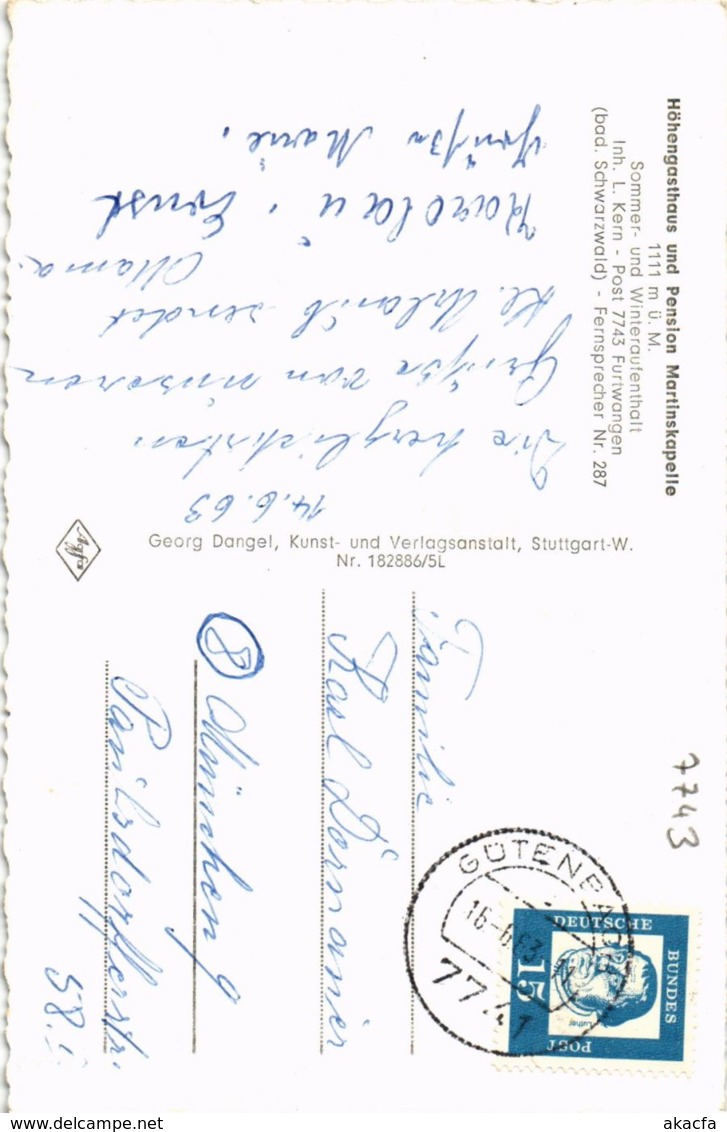 Höhengasthaus und Pension Martinskapelle
1111 m ü. M.
Sommer- und Winteraufenthalt
Inh. L. Kern - Post 7743 Furtwangen
(bad. Schwarzwald) - Fernsprecher Nr. 287
14.6.63
Die herzlichsten
Grüße von unseren
kl. Urlaub sendet
Mama.
Karola u. Ernst
Grüße Marie.
Georg Dangel, Kunst- und Verlagsanstalt, Stuttgart-W.
Nr. 182886/5L
Agfa
Familie
Karl Dormaier
8 München 9
58.
7743
GÜTENBACH
16.-6.63
7741
DEUTSCHE
BUNDES
POST
15
Luther
akacfa